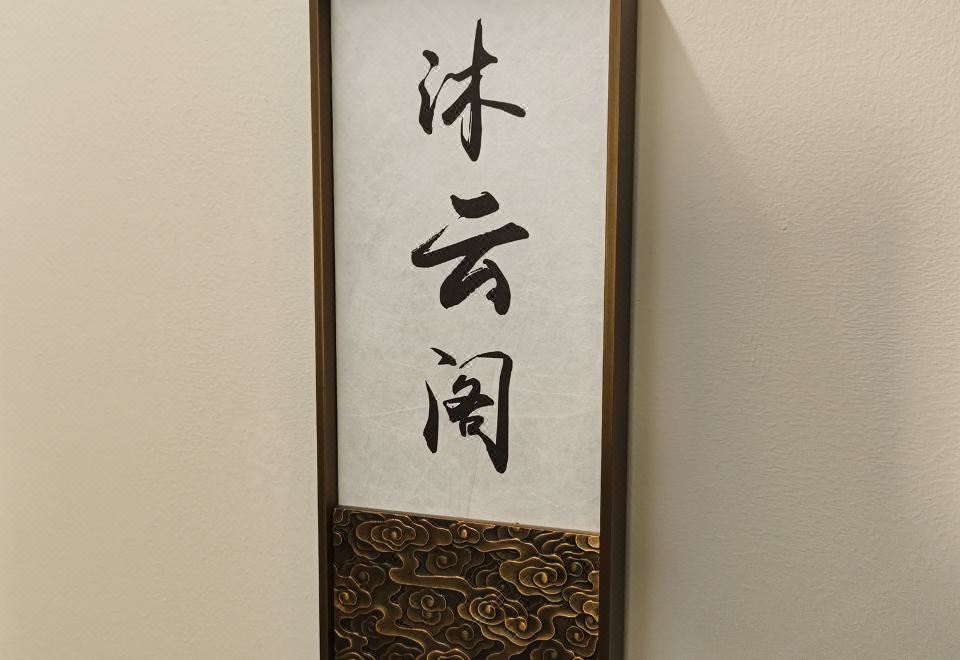 沐云阁